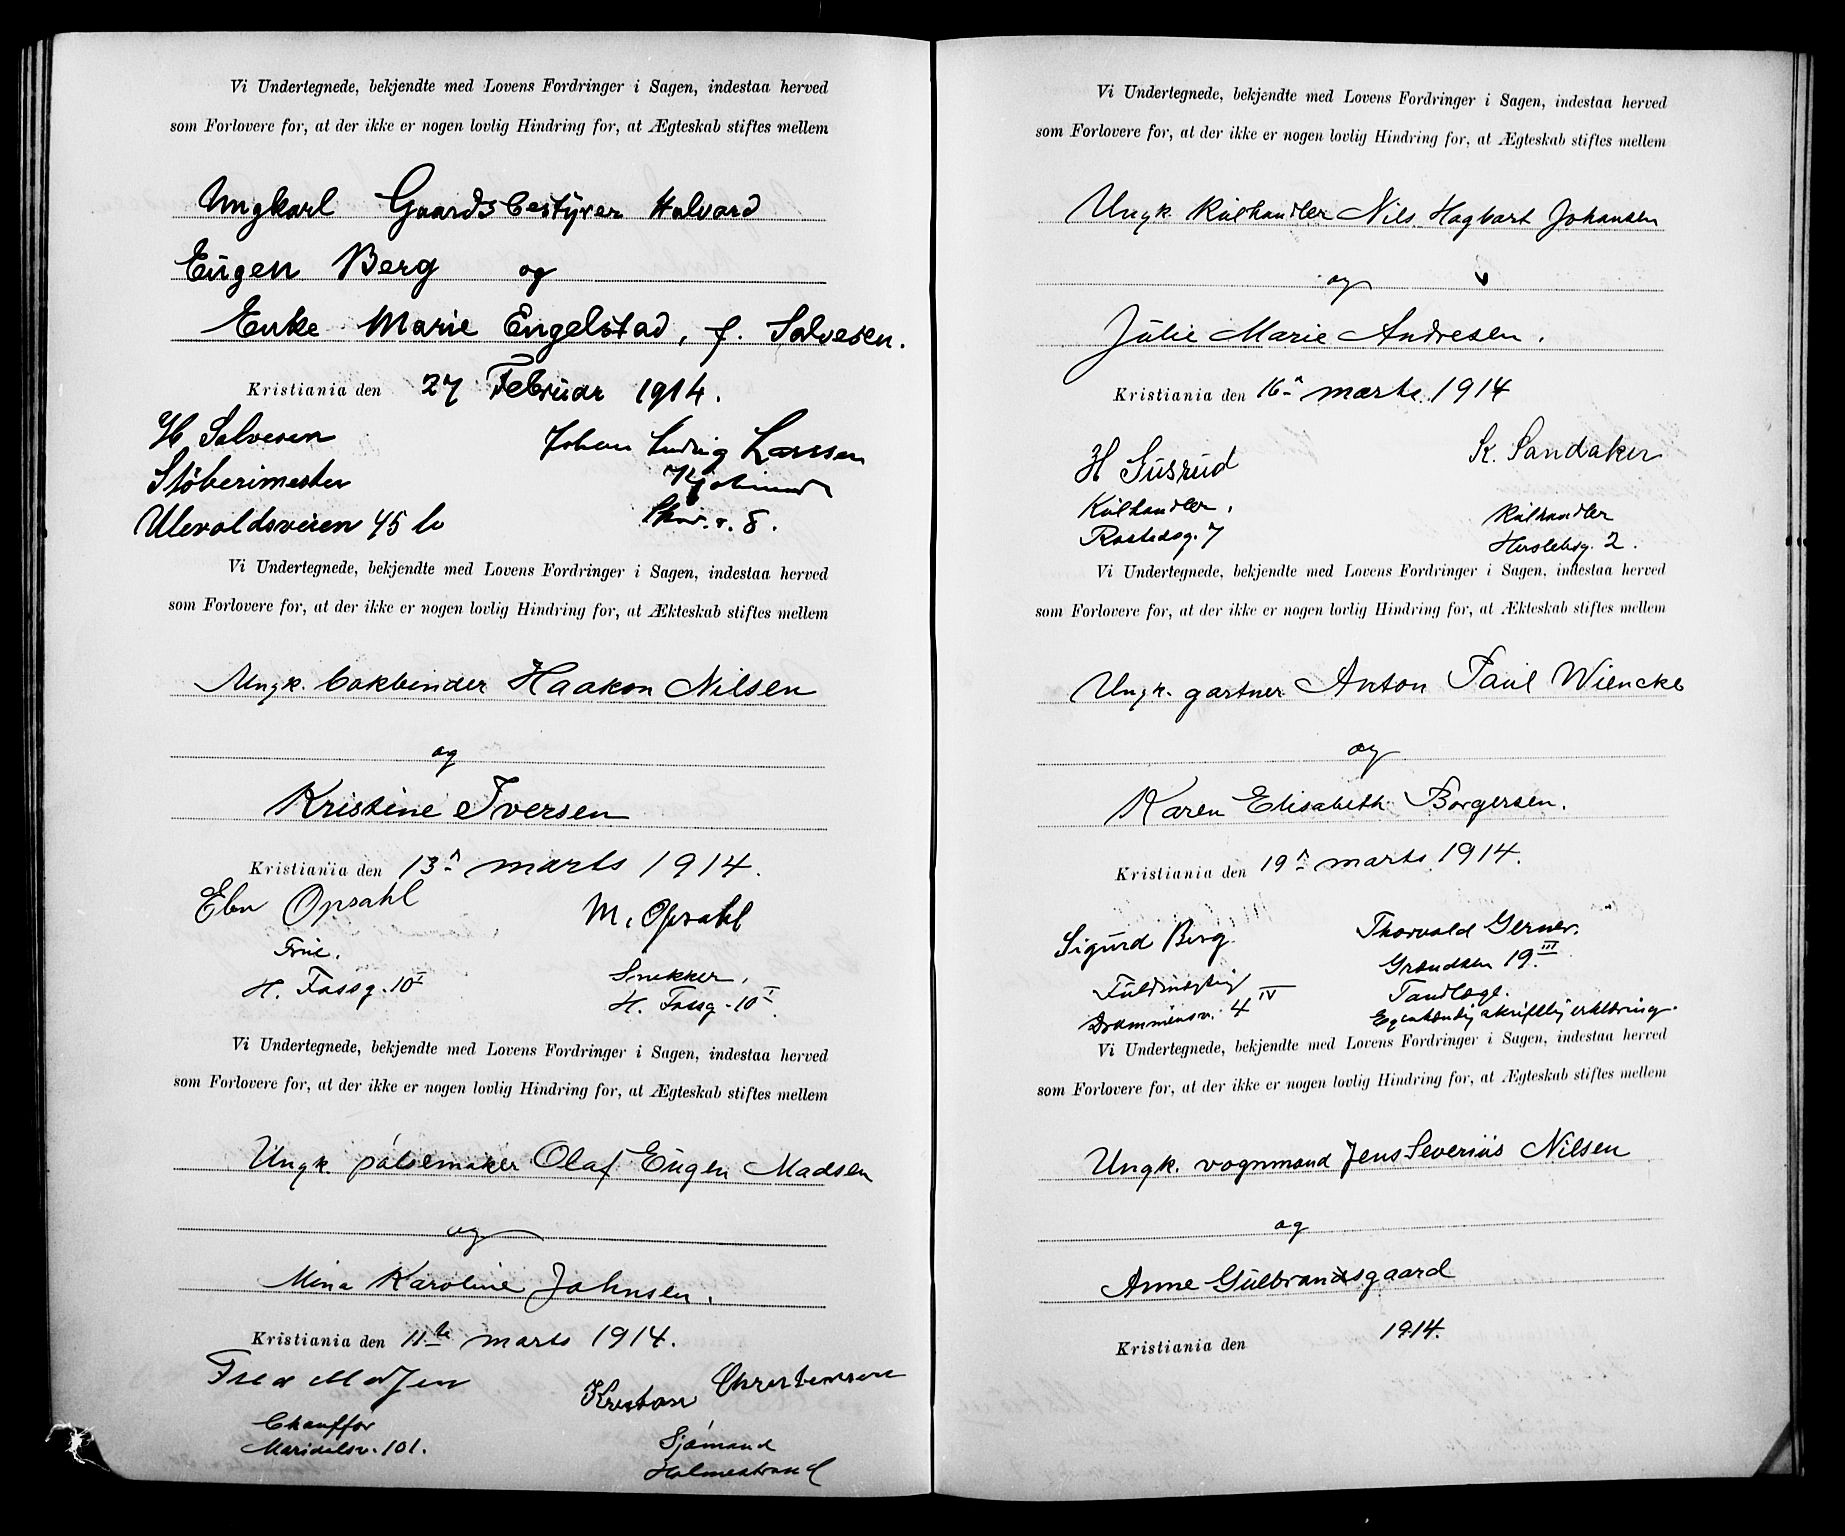 Vi Undertegnede, bekjendte med Lovens Fordringer i Sagen, indestaa herved
som Forlovere for, at der ikke er nogen lovlig Hindring for, at Ægteskab stiftes mellem
Ungkarl Gaardsbestyrer Halvard
Eugen Berg og
Enke Marie Engelstad, f. Salvesen.
Kristiania den 27 Februar 1914.
H Salvesen
Støberimester
Ulevoldsveien 45 b
Johan Ludvig Larssen
8.
Vi Undertegnede, bekjendte med Lovens Fordringer i Sagen, indestaa herved
som Forlovere for, at der ikke er nogen lovlig Hindring for, at Ækteskab stiftes mellem
Ungk. bokbinder Haakon Nilsen
og
Kristine Iversen
Kristiania den 13de marts 1914.
Opsahl
Frue.
H. Fossg. 10 I
M. Opsahl
Snekker.
H. Fossg. 10 I.
Vi Undertegnede, bekjendte med Lovens Fordringer i Sagen, indestaa herved
som Forlovere for, at der ikke er nogen lovlig Hindring for, at Ægteskab stiftes mellem
Ungk. pølsemaker Olaf Eugen Madsen
og
Mina Karoline Johnsen.
Kristiania den 11te marts 1914.
Fred Madsen
Chauffør
Maridalsv. 101.
Kristian Christensen
Sjømand
Holmestrand
Vi Undertegnede, bekjendte med Lovens Fordringer i Sagen, indestaa herved
som Forlovere for, at der ikke er nogen lovlig Hindring for, at Ægteskab stiftes mellem
Ungk. kulhandler Nils Hagbart Johansen
og
Julie Marie Andresen.
Kristiania den 16de marts 1914
H Gusrud
Kulhandler.
Rostedsg. 7
K. Sandaker
Kulhandler
Herslebsg. 2.
Vi Undertegnede, bekjendte med Lovens Fordringer i Sagen, indestaa herved
som Forlovere for, at der ikke er nogen lovlig Hindring for, at Ækteskab stiftes mellem
Ungk. gartner Anton Paul Wiencke
og
Karen Elisabeth Borgersen.
Kristiania den 19de marts 1914.
Sigurd Berg
Fuldmægtig
Drammensv. 4 IV
Thorvald Gerner.
Grændsen 19. III
Tandlæge.
Egenhændig skriftlig erklæring.
Vi Undertegnede, bekjendte med Lovens Fordringer i Sagen, indestaa herved
som Forlovere for, at der ikke er nogen lovlig Hindring for, at Ægteskab stiftes mellem
Ungk. vognmand Jens Severius Nilsen
og
Anne Gulbrandsgaard
Kristiania den 1914.